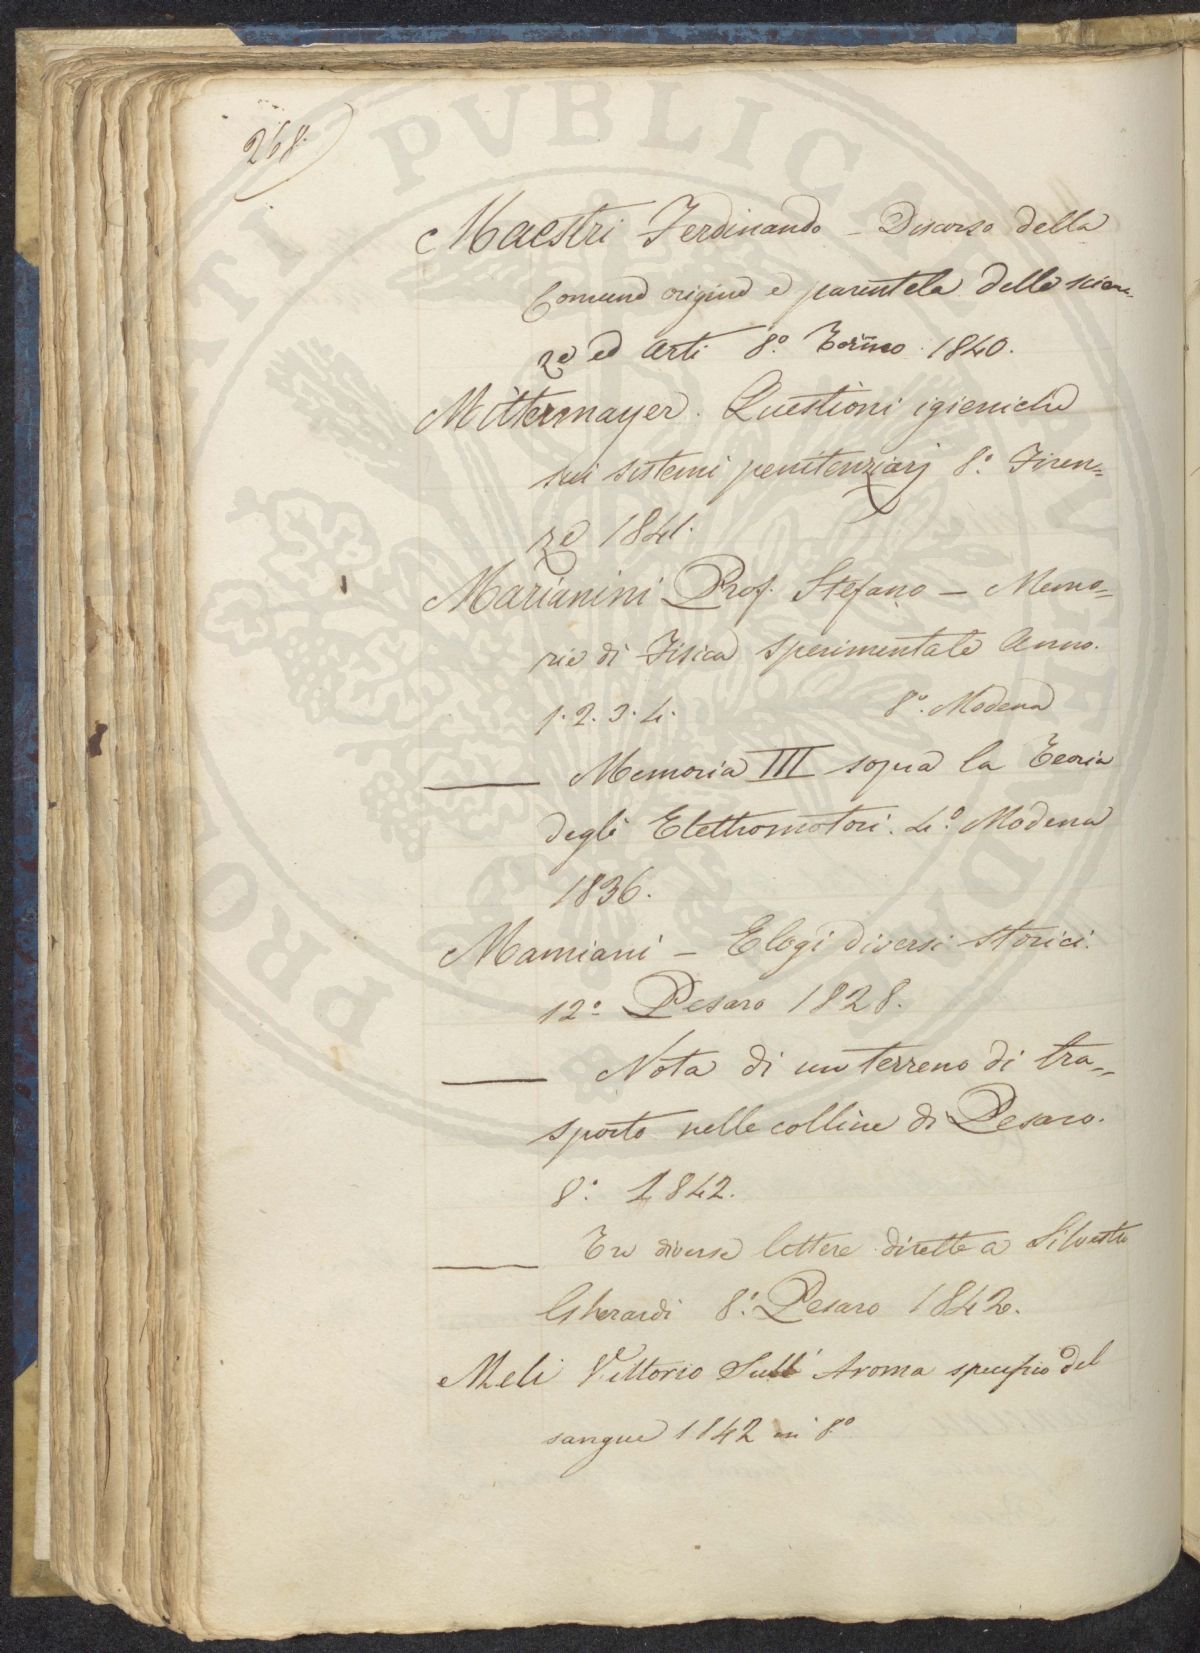 268.
Maestri Ferdinando – Discorso della
Comune origine e parentela delle scien-
ze ed arti 8.º Torino 1840.
Mittermayer. Questioni igieniche
sui sistemi penitenziarj 8.º Firen=
ze 1841.
Marianini Prof. Stefano – Memo=
rie di Fisica sperimentale Anno.
1. 2. 3. 4. 8.º Modena
—— Memoria III sopra la Teoria
degli Elettromotori. 4.º Modena
1836.
Mamiani – Elogi diversi storici.
12º Pesaro 1828.
—— Nota di un terreno di tra=
sporto nelle colline di Pesaro.
8.º 1842.
—— Tre diverse lettere dirette a Silvestro
Gherardi 8.º Pesaro 1842.
Meli Vittorio Sull' Aroma specifico del
sangue 1842 in 8º
PROBITATI PVBLICAE